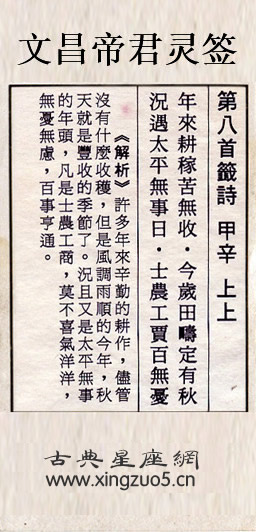 文昌帝君灵签
第八首籤詩 甲辛 上上
年來耕稼苦無收．今歲田疇定有秋
況遇太平無事日．士農工賈百無憂
《解析》許多年來辛勤的耕作，儘管
沒有什麼收穫，但是風調雨順的今年，秋
天就是豐收的季節了。況且又是太平無事
的年頭，凡是士農工商，莫不喜氣洋洋，
無憂無慮，百事亨通。
古典星座網
www.xingzuo5.cn